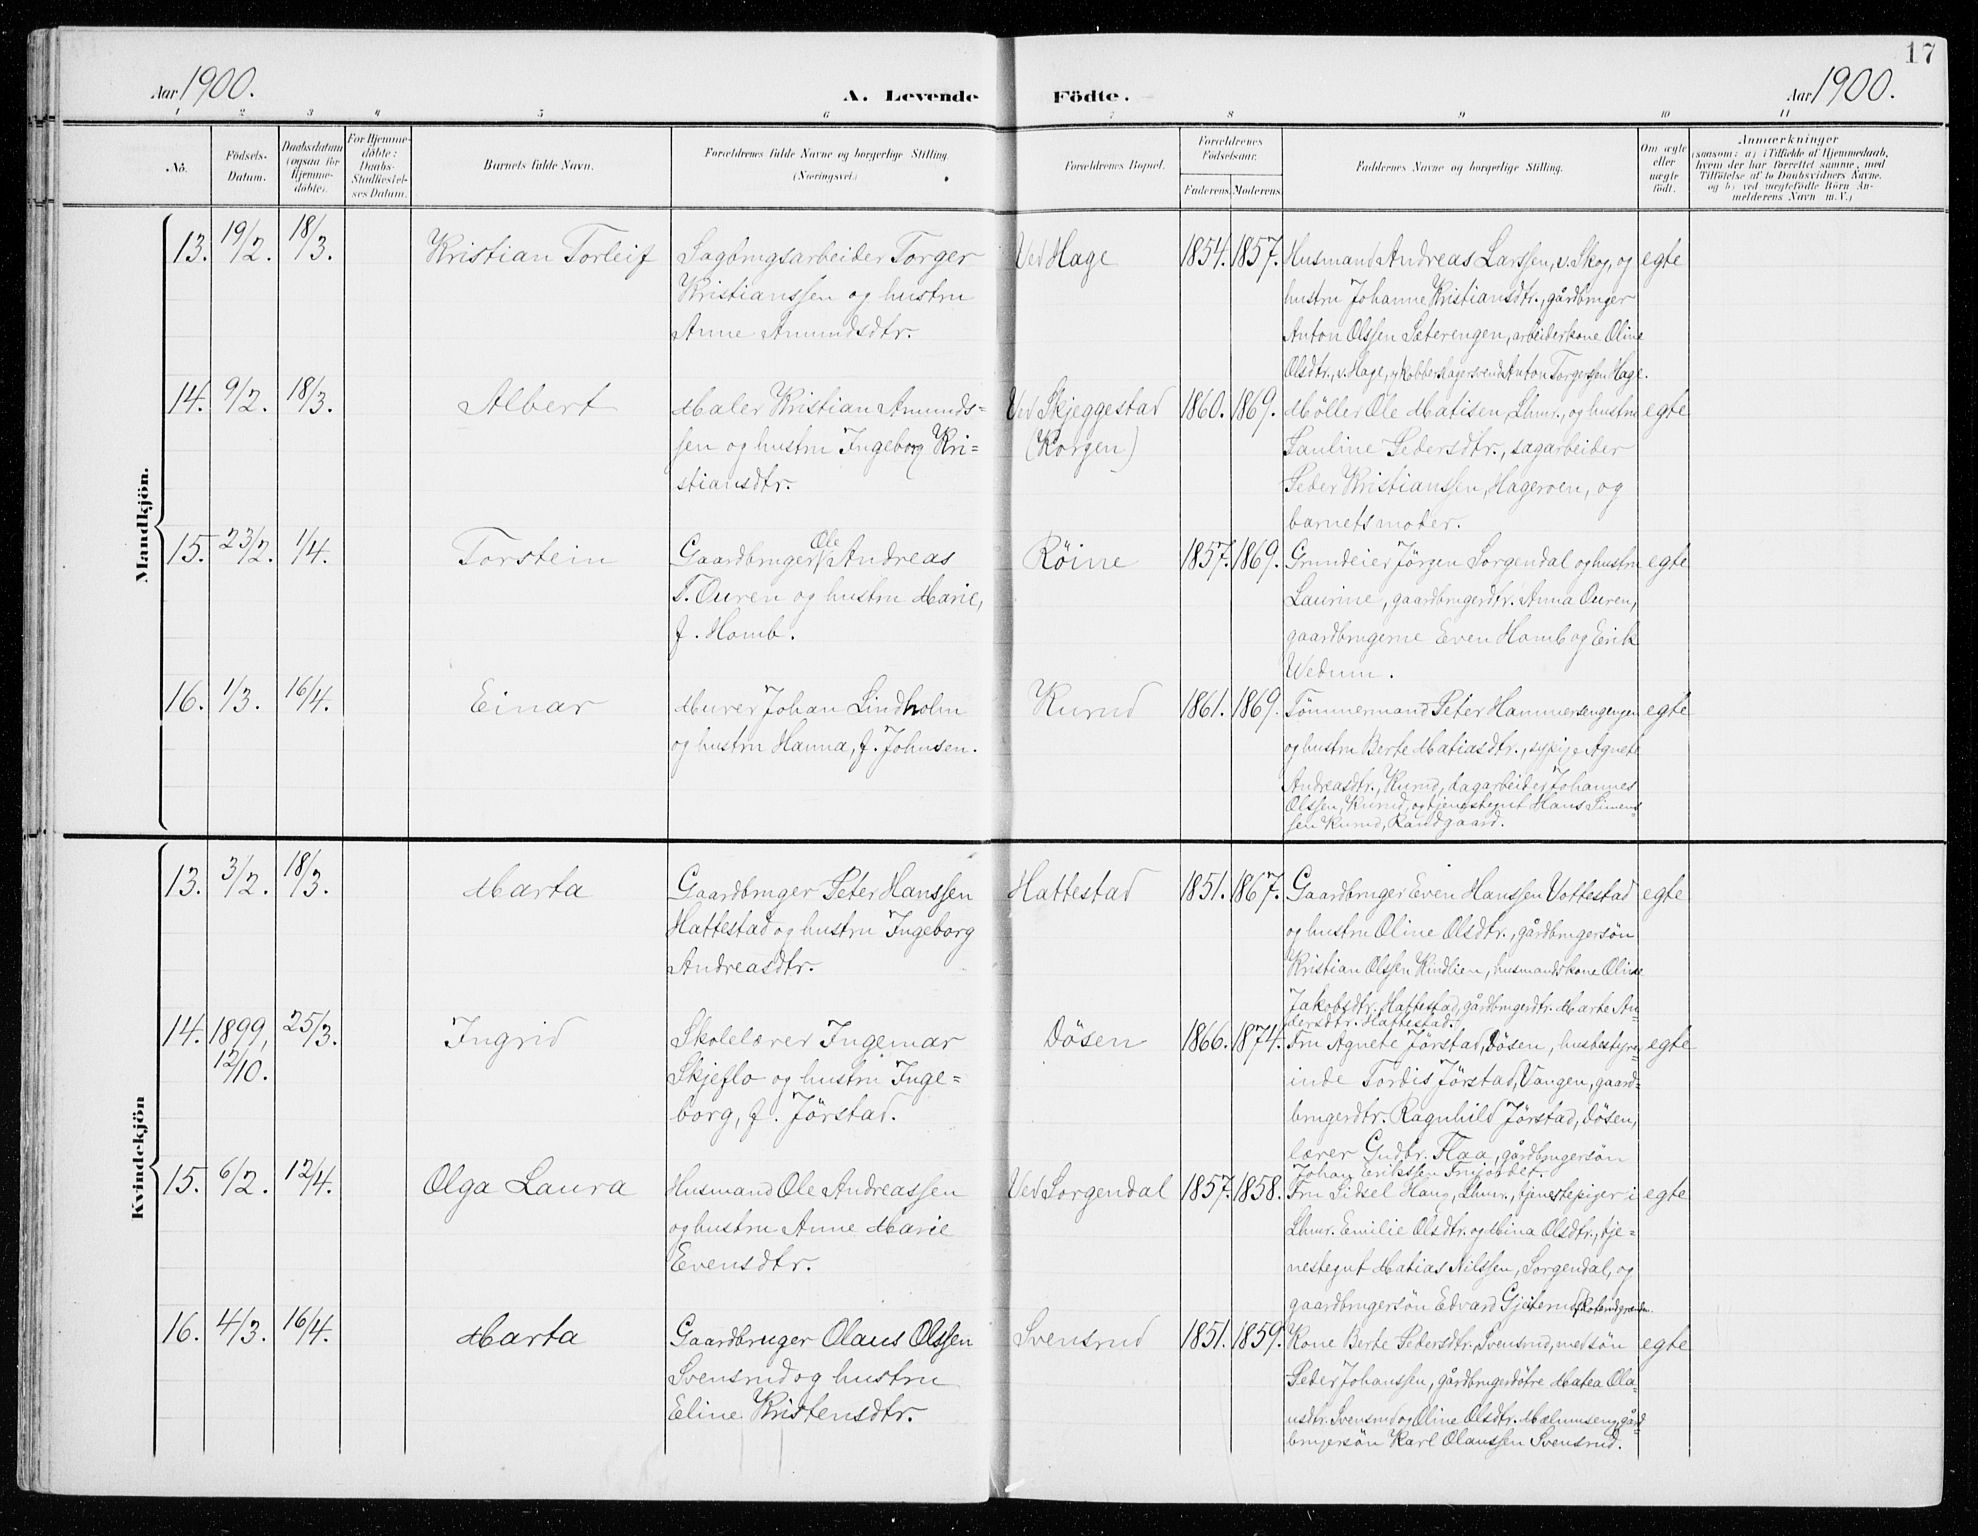 17
Aar 1900.
A. Levende Födte.
Aar 1900.
1 2 3 4 5 6 7 8 9 10 11
No.
Födsels-Datum.
Daabsdatum (ogsaa for Hjemmedöbte).
For Hjemmedöbte: Daabs-Stadfæstelses Datum.
Barnets fulde Navn.
Forældrenes fulde Navne og borgerlige Stilling. (Næringsvei.)
Forældrenes Bopæl.
Forældrenes Födselsaar.
Faderens. Moderens.
Faddernes Navne og borgerlige Stilling.
Om ægte eller uægte födt.
Anmærkninger
(saasom: a) i Tilfælde af Hjemmedaab,
hvem der har forrettet samme, med
Tilföielse af to Daabsvidners Navne.
og b) ved uægtefödte Börn An-
melderens Navn m. V.)
Mandkjön.
13. 19/2. 18/3. Kristian Torleif
Sagbrugsarbeider Torger
Kristianssen og hustru
Anne Amundsdtr.
Ved Hage 1854. 1857.
Husmand Andreas Larssen, v. Skog, og
hustru Johanne Kristiansdtr., gårdbruger
Anton Olssen Sæterengen, arbeiderkone Oline
Olsdtr., v. Hage, kobberslagersvend Anton Torgersen Hage.
egte
14. 9/2. 18/3. Albert
Maler Kristian Amunds-
sen og hustru Ingeborg Kri-
stiansdtr.
Ved Skjeggestad
(Korgen)
1860. 1869.
Möller Ole Matisen, Lhmr., og hustru
Pauline Pedersdtr., sagarbeider
Peder Kristianssen, Hageroen, og
barnets moder.
egte
15. 23/2. 1/4. Torstein
Gaardbruger Ole Andreas
T. Ouren og hustru Marie,
f. Homb.
Röine 1857. 1869.
Grundeier Jörgen Sorgendal og hustru
Laurine, gaardbrugerdtr. Anna Ouren,
gaardbrugerne Even Homb og Erik
Wedum.
egte
16. 1/3. 16/4. Einar
Murer Johan Lindholm
og hustru Hanna, f. Johnsen.
Kurud 1861. 1869.
Tömmermand Peter Hammersengengen
og hustru Berte Matiasdtr., sypige Agnete
Andreasdtr., Kurud, dagarbeider Johannes
Olssen, Kurud, og tjenestegut Hans Simens-
sen Kurud, Randgaard.
egte
Kvindekjön
13. 3/2. 18/3. Marta
Gaardbruger Peter Hanssen
Hattestad og hustru Ingeborg
Andreasdtr.
Hattestad 1851. 1867.
Gaardbruger Even Hanssen Vottestad
og hustru Oline Olsdtr., gårdbrugersön
Kristian Olssen Kindlien, husmandskone Oline
Jakobsdtr. Hattestad, gårdbrugerdtr. Marte An-
dersdtr. Hattestad.
egte
14. 1899, 12/10. 25/3. Ingrid
Skolelærer Ingemar
Skjeflo og hustru Inge-
borg, f. Jörstad.
Dösen 1866. 1874.
Fru Agnete Jörstad, Dösen, husbestyrer-
inde Tordis Jörstad, Vangen, gaard-
brugerdtr. Ragnhild Jörstad, Dösen,
lærer Gudbr. Flaa, gårdbrugersön
Johan Erikssen
egte
15. 6/2. 12/4. Olga Laura
Husmand Ole Andreassen
og hustru Anne Marie
Evensdtr.
Ved Sorgendal 1857. 1858.
Fru Sidsel Haug, Lhmr., tjenestepiger i
Lhmr. Emilie Olsdtr. og Mina Olsdtr., tje-
nestegut Matias Nilssen, Sorgendal, og
gaardbrugersön Edvard
egte
16. 4/3. 16/4. Marta
Gaardbruger Olaus Olssen
Svensrud og hustru
Eline Kristensdtr.
Svensrud 1851. 1859.
Kone Berte Pedersdtr. Svensrud, med sön
Peder Johanssen, gårdbrugerdötre Matea Ola-
usdtr. Svensrud og Oline Olsdtr. Mælumseng, gård-
brugersön Karl Olaussen Svensrud.
egte